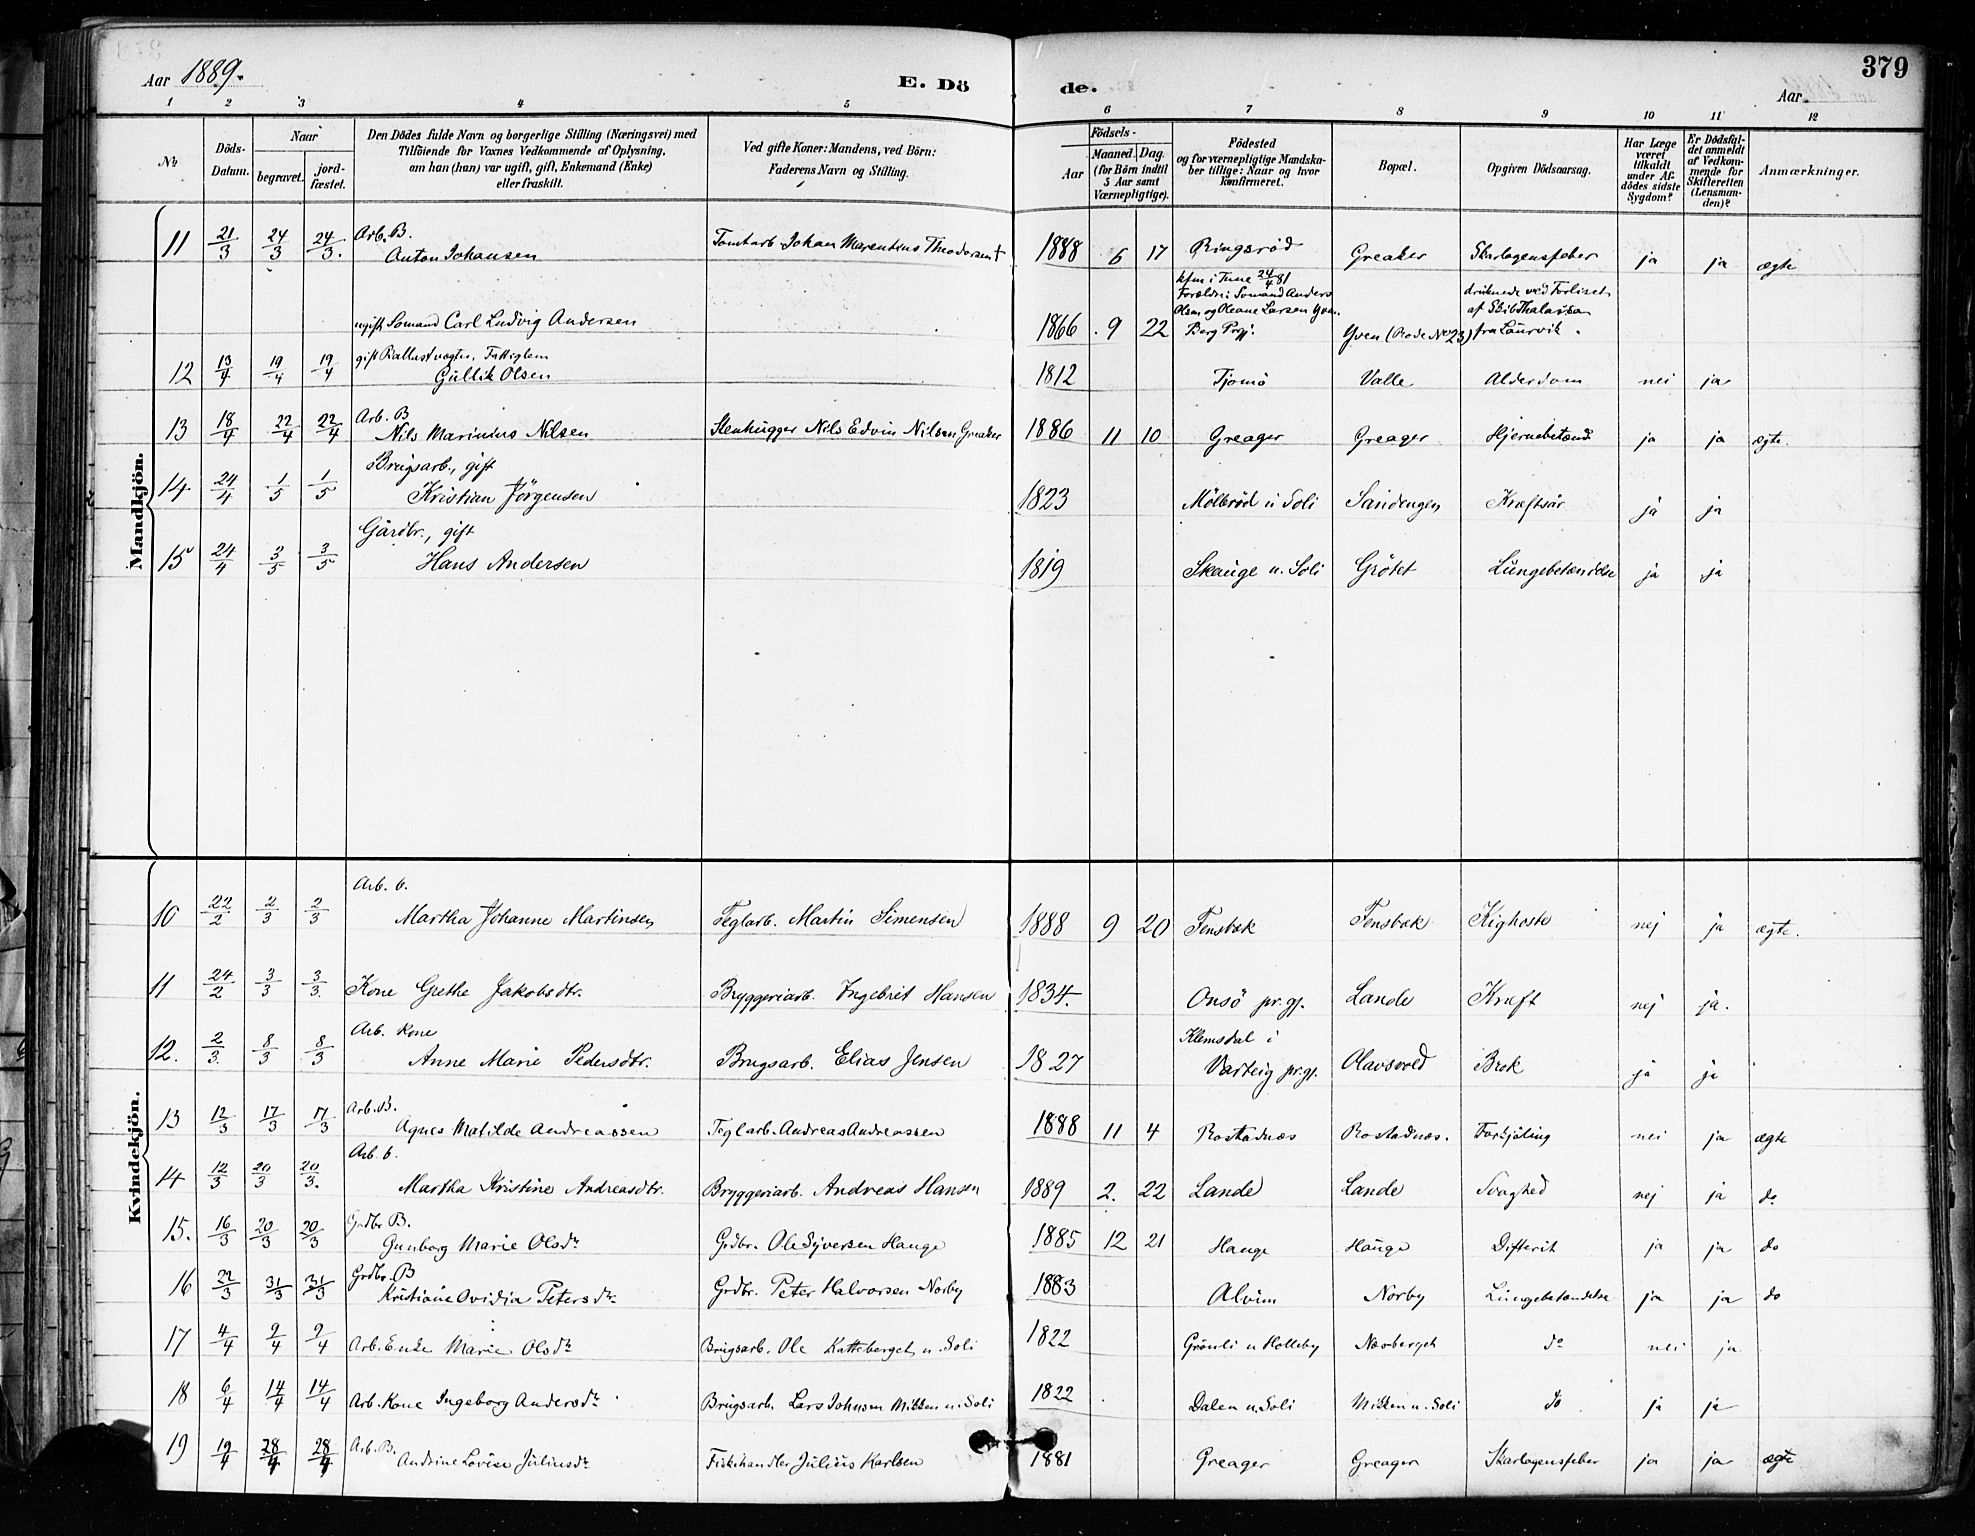 379
Aar 1889.
E. Dö
de.
Aar
1 2 3 4 5 6 7 8 9 10 11 12
No
Döds-Datum.
Naar
begravet.
jord-fæstet.
Den Dödes fulde Navn og borgerlige Stilling (Næringsvei) med Tilföiende for Voxnes Vedkommende af Oplysning, om han (hun) var ugift, gift, Enkemand (Enke) eller fraskilt.
Ved gifte Koner: Mandens, ved Börn: Faderens Navn og Stilling.
Födsels-
Aar
Maaned. Dag.
(for Börn indtil 5 Aar samt Værnepligtige).
Födested og for værnepligtige Mandskaber tillige: Naar og hvor konfirmeret.
Bopæl.
Opgiven Dödsaarsag.
Har Læge været tilkaldt under Afdödes sidste Sygdom?
Er Dödsfaldet anmeldt af Vedkommende for Skifteretten (Lensmanden)?
Anmærkninger.
Mandkjön.
11 21/3 24/3 24/3. Arb. B. Anton Johansen Tomtarb Johan Marentius Theodorsen † 1888 6 17 Ringsrød Greaker Skarlagensfeber ja ja ægte
ugift Sømand Carl Ludvig Andersen 1866 9 22 kfm i Tune 24/4 81 Forældre: Sømand Anders Olsen og Oleane Larsen Yven. Berg Prgj. Yven (Rode No 23) druknede ved Forliset af Skib Thalassa fra Laurvik.
12 13/4 19/4 19/4 gift Ballastvægter, Fattiglem Gullik Olsen 1812 Tjomö Valle Alderdom nei ja
13 18/4 22/4 22/4 Arb. B Nils Marinius Nilsen Stenhugger Nils Edvin Nilsen Greaker 1886 11 10 Greager Greager Hjernebetænd. ja ja ægte.
14 24/4 1/5 1/5 Brugsarb., gift Kristian Jörgensen 1823 Mölbröd u Soli Sandengen Kræftsår ja ja
15 24/4 3/5 3/5 Gårdbr., gift Hans Andersen 1819 Skauge u. Soli Grötet Lungebetændelse ja ja
Kvindekjön.
10 22/2 2/3 2/3 Arb. b. Martha Johanne Martinsen Teglarb. Martin Simensen 1888 9 20 Fensbæk Fensbæk Kighoste nej ja ægte.
11 24/2 3/3 3/3 Kone Grethe Jakobsdtr. Bryggeriarb. Ingebret Hansen 1834. Onsö pr.gj. Lande Kræft nej ja.
12. 2/3 8/3 8/3 Arb. Kone Anne Marie Pedersdtr. Brugsarb. Elias Jensen 1827 Klemsdal i Varteig pr.gj. Olavsvold Brok ja ja
13 12/3 17/3 17/3 Arb. B. Agnes Matilde Andreassen Teglarb. Andreas Andreassen 1888 11 4 Rostadnæs Rostadnæs. Forkjöling nei ja ægte
14 12/3 20/3 20/3. Arb. b. Martha Kristine Andreasdtr. Bryggeriarb. Andreas Hansen 1889 2. 22 Lande Lande Svaghed nej ja do
15. 16/3 20/3 20/3 Grdbr B. Gunborg Marie Olsdr Grdbr. Ole Syversen Hauge 1885 12 21 Hauge Hauge Difterit ja ja do
16 22/3 31/3 31/3 Grdbr. B Kristiane Ovidia Petersdr Grdbr. Peter Halvorsen Norby 1883 Alvim Norby Lungebetændelse ja ja do
17 4/4 9/4 9/4 Arb. Enke Marie Olsdr Brugsarb. Ole Katteberget u. Soli 1822 Grönli u Holleby Næsberget do nei ja
18 6/4 14/4 14/4 Arb. Kone Ingeborg Andersdr Brugsarb. Lars Johnsen Mikken u. Soli 1822 Dalen u. Soli Mikken u. Soli do ja ja
19 19/4 28/4 28/4 Arb. B. Andrine Lovise Juliusdr Fiskehandler Julius Karlsen 1881 Greager Greager Skarlagensfeber ja ja ægte